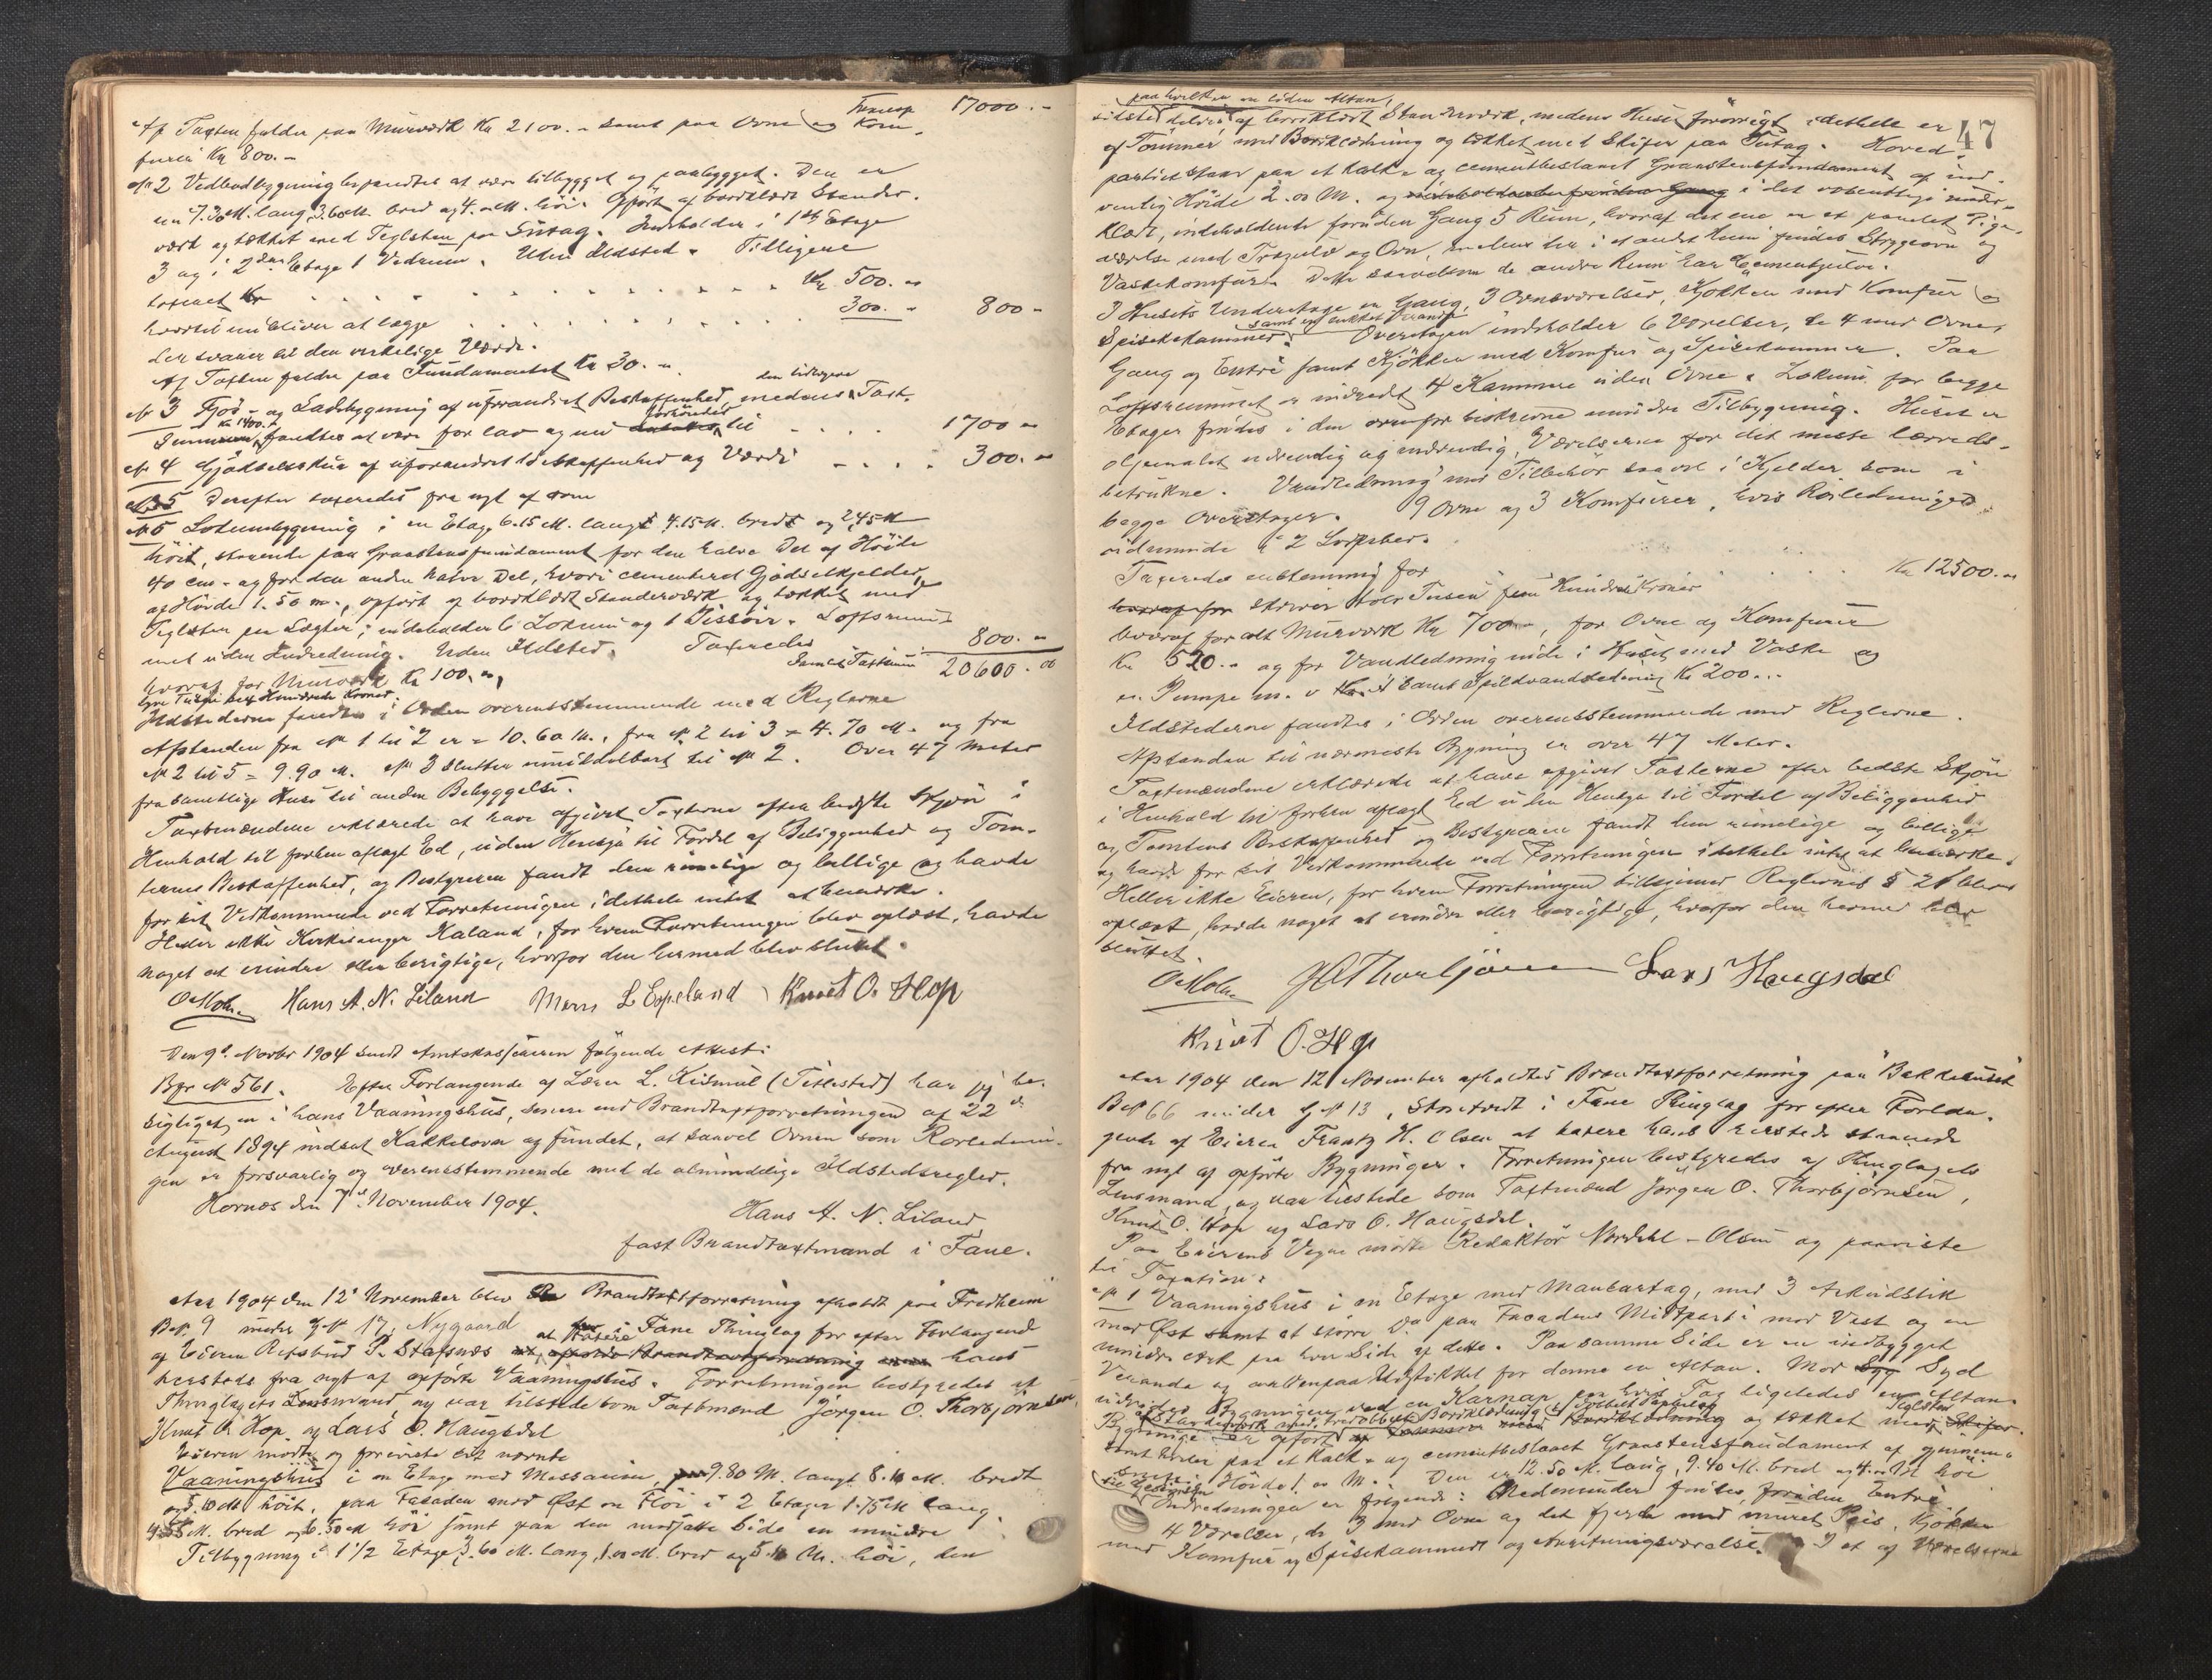 Transp. 17000.-
Af Taxten falder paa Murværk Kr 2100.- samt paa Ovne og Kom-
furer Kr 800.-
No 2 Vedbodbygning befandtes at være tilbygget og paabygget. Den er
nu 7.30 M. lang, 3.60 M. bred og 4. M. höi. Opført af bordklædt Stander-
værk og tækket med Teglsten paa Sutag. Indeholder i 1ste Etage
3 og i 2den Etage 1 Vedrum. Uden Ildsted. Tidligere
taxeret Kr . . . . Kr. 500.-
hvortil nu bliver at lægge . . . . 300.- 800-
der svarer til den virkelige Værdi.
Af Taxten falder paa Fundamentet Kr 30.-
No 3 Fjös- og Ladebygning af uforandret Beskaffenhed, medens den tidligere Taxt-
sum Kr 1400.- fandtes at være for lav og nu forhöiedes til . . . . 1700-
No 4 Gjödselsskur af uforandret Beskaffenhed og Værdi . . . . 300.-
Derefter taxeredes fra nyt af som
No 5 Lokumbygning i en Etage 6.15 M. langt 4.15 M. bredt og 2,45 M
höit, staaende paa Graastensfundament for den halve Del af Höide
40 cm. og for den anden halve Del, hvori cementeret Gjödselkjelder,
af Höide 1.50 m., opført af bordklædt Standerværk og tækket med
Teglsten paa Lægter; indeholder 6 Lokum og 1 Pissoir. Loftsrum-
met uden Indredning. Uden Ildsted. Taxeredes 800.-
hvoraf for Murværk Kr 100.-, Samlet Taxtsum 20600.00
tyve Tusinde sex Hundrede Kroner.
Ildstederne fandtes i Orden overensstemmende med Reglerne
Afstanden fra No 1 til 2 er = 10.60 M., fra No 2 til 3 = 4.70 M. og fra
No 2 til 5 = 9.90 M. No 3 slutter umiddelbart til No 2. Over 47 Meter
fra samtlige Huse til anden Bebyggelse.
Taxtmændene erklærede at have afgivet Taxterne efter bedste Skjön i
Henhold til forhen aflagt Ed, uden Hensyn til Fordel af Beliggenhed og Tom-
ternes Beskaffenhed, og Bestyreren fandt dem rimelige og billige og havde
for sit Vedkommende ved Forretningen idethele intet at bemærke.
Heller ikke Kirkesanger Kaland, for hvem Forretningen blev oplæst, havde
noget at erindre eller berigtige, hvorfor den hermed blev sluttet.
OMohn Hans A. N. Liland Mons L Espeland Knut O. Hop
Den 9de Novbr 1904 sendt Amtskassereren følgende Attest:
Bgr No 561. Efter Forlangende af Lærer L. Kismul (Titlestad) har jeg be-
sigtiget en i hans Vaaningshus, senere end Brandtaxtforretningen af 22de
August 1894 indsat Kakkelovn og fundet, at saavel Ovnen som Rørlednin-
gen er forsvarlig og overensstemmende med de almindelige Ildstedsregler.
Hornæs den 7de November 1904.
Hans A. N. Liland
fast Brandtaxtmand i Fane.
Aar 1904 den 12te November blev Brandtaxtforretning afholdt paa Fredheim
B.No 9 under G.No 17, Nygaard i Fane Thinglag for efter Forlangende
af Eieren P. Stafsnæs at taxere hans
hersteds fra nyt af opførte Vaaningshus. Forretningen bestyredes af
Thinglagets Lensmand, og var tilstede som Taxtmænd Jörgen O. Thorbjörnsen,
Knut O. Hop og Lars O. Haugsdal
Eieren mødte og foreviste sit nævnte
Vaaningshus i en Etage med Messanin, 9.80 M. langt 8.10 M. bredt
og 5.10 M. höit, paa Fasaden mod Øst en Flöi i 2 Etager 1.75 M. lang,
4.55 M. bred og 6.50 M höi samt paa den modsatte Side en mindre
Tilbygning i 1 1/2 Etage, 3.60 M. lang, 1. M. bred og 5.10 M. höi, den
47
paa hvilken en liden Altan,
sidste deles af bordklædt Standerværk, medens Huset forövrigt idethele er
af Tömmer med Bordklædning og tækket med Skifer paa Sutag. Hoved-
partiet staar paa et kalk- og cementbeslaaet Graastensfundament af ind-
vendig Höide 2.00 M. og i det væsentlige under-
klædt, indeholdende foruden Gang 5 Rum, hvoraf det ene er et panelet Pige-
værelse med Trægulv og Ovn, medens der i et andet Rum findes Strygeovn og
Vaskekomfur. Dette saavelsom de andre Rum har Cementgulve.
I Husets Underetage er Gang, 3 Ovnsværelser, Kjökken med Komfur og
Spisekammer samt en lukket Veranda. Overetagen indeholder 6 Værelser, de 4 med Ovne,
Gang og Entré samt Kjökken med Komfur og Spisekammer. Paa
Loftsrummet er indredet 4 Kammere uden Ovne. Lokum for begge
Etager findes i den ovenfor beskrevne mindre Tilbygning. Huset er
oljemalet udvendig og indvendig, Værelserne for det meste lærreds-
betrukne. Vandledning med Tilbehör saavel i Kjelder som i
begge Overetager. 9 Ovne og 3 Komfurer, hvis Rörledninger
udmunde i 2 Skorpiber.
Taxeredes enstemmig for . . . . Kr 12500.-
skriver tolv Tusen fem Hundrede Kroner
hvoraf for alt Murværk Kr 700.-, for Ovne og Komfurer
Kr 520.- og for Vandledning inde i Huset med Vaske og
en Pumpe m. v samt Spildvandsledning Kr 200.-
Ildstederne fandtes i Orden overensstemmende med Reglerne.
Afstanden til nærmeste Bygning er over 47 Meter.
Taxtmændene erklærede at have afgivet Taxterne efter bedste Skjön
i Henhold til forhen aflagt Ed uden Hensyn til Fordel af Beliggenhed
og Tomtens Beskaffenhed og Bestyreren fandt dem rimelige og billige
og havde for sit Vedkommende ved Forretningen idethele intet at bemærke.
Heller ikke Eieren, for hvem Forretningen tilligemed Reglernes § 21 blev
oplæst, havde noget at erindre eller berigtige, hvorfor den hermed blev
sluttet.
OMohn JOThorbjörnsen Lars Haugsdal
Knut O. Hop
Aar 1904 den 12 November afholdtes Brandtaxtforretning paa "Bakkehuset"
B.No 66 under G.No 13, Storetvedt i Fane Thinglag for efter Forlan-
gende af Eieren Frantz H. Olsen at taxere hans hersteds staaende
fra nyt af opførte Bygninger. Forretningen bestyredes af Thinglagets
Lensmand, og var tilstede som Taxtmænd Jörgen O. Thorbjörnsen,
Knut O. Hop og Lars O. Haugsdal.
Paa Eierens Vegne mötte Redaktör Nordahl-Olsen og paaviste
til Taxation:
No 1 Vaaningshus i en Etage med Mansartag, med 3 Arkudstik
mod Øst samt et större Do paa Facadens Midtparti mod Vest og en
mindre Ark paa hver Side af dette. Paa samme Side er en indbygget
Veranda og ovenpaa Udstikket for denne en Altan. Mod Syd
udvides Bygningen ved en Karnap, paa hvis Tag ligeledes en Altan.
Bygningen er opført af Standerværk med tredobbelt Bordklædning og dobbelt Paplag og tækket med Teglsten
samt hviler paa et kalk- og cementbeslaaet Graastensfundament af gjennem-
snitlig Höide 1. M. Den er 12.50 M. lang, 9.40 M. bred og 4. M höi
Indredningen er følgende: Nedenunder findes, foruden Entré
4 Værelser, de 3 med Ovne og det fjerde med muret Peis, Kjökken
med Komfur og Spisekammer og Anretningsværelse. I et af Værelserne